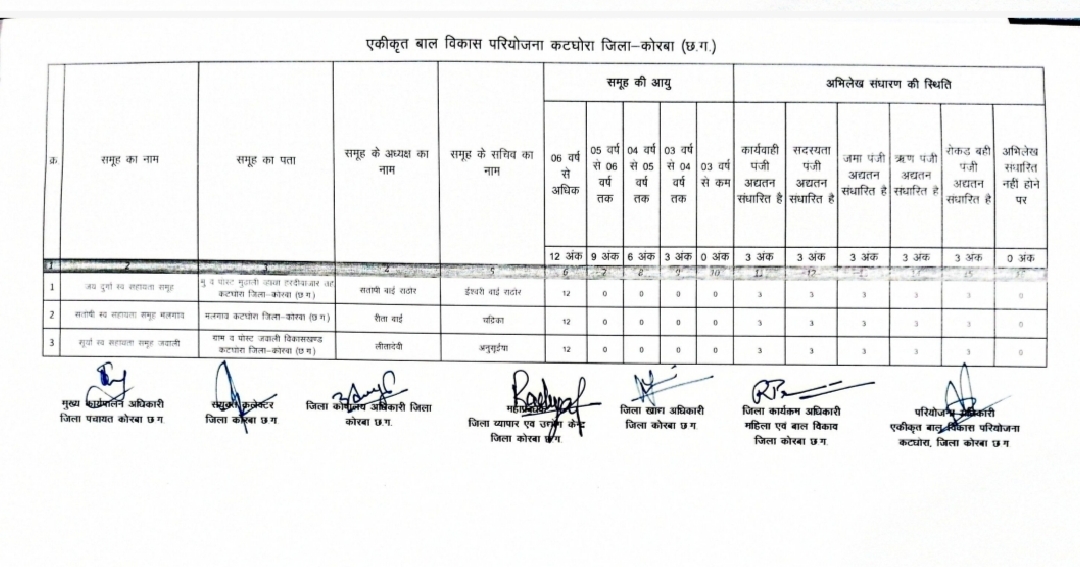 एकीकृत बाल विकास परियोजना कटघोरा जिला–कोरबा (छ.ग.)
क्र समूह का नाम समूह का पता समूह के अध्यक्ष का नाम समूह के सचिव का नाम समूह की आयु अभिलेख संधारण की स्थिति
06 वर्ष से अधिक 05 वर्ष से 06 वर्ष तक 04 वर्ष से 05 वर्ष तक 03 वर्ष से 04 वर्ष तक 03 वर्ष से कम कार्यवाही पंजी अद्यतन संधारित है सदस्यता पंजी अद्यतन संधारित है जमा पंजी अद्यतन संधारित है ऋण पंजी अद्यतन संधारित है रोकड बही पंजी अद्यतन संधारित है अभिलेख संधारित नही होने पर
12 अंक 9 अंक 6 अंक 3 अंक 0 अंक 3 अंक 3 अंक 3 अंक 3 अंक 3 अंक 0 अंक
1 2 3 4 5 6 7 8 9 10 11 12
1 जय दुर्गा स्व सहायता समूह मु व पोस्ट हरदीबाजार तह कटघोरा जिला–कोरबा (छ ग) संतोषी बाई राठोर ईश्वरी बाई राठोर 12 0 0 0 0 3 3 3 3 3 0
2 संतोषी स्व सहायता समूह मलगाव मलगाव कटघोरा जिला–कोरबा (छ ग) रीता बाई चद्रिका 12 0 0 0 0 3 3 3 3 3 0
3 सूर्या स्व सहायता समूह जवाली ग्राम व पोस्ट जवाली विकासखण्ड कटघोरा जिला–कोरबा (छ ग) लीलादेवी अनुसूईया 12 0 0 0 0 3 3 3 3 3 0
मुख्य कार्यपालन अधिकारी
जिला पंचायत कोरबा छ ग.
संयुक्त कलेक्टर
जिला कोरबा छ ग
जिला कोषालय अधिकारी जिला
कोरबा छ.ग.
महाप्रबंधक
जिला व्यापार एव उद्योग केन्द्र
जिला कोरबा छ ग
जिला खान अधिकारी
जिला कोरबा छ ग.
जिला कार्यकम अधिकारी
महिला एवं बाल विकाव
जिला कोरबा छ ग
परियोजना अधिकारी
एकीकृत बाल विकास परियोजना
कटघोरा, जिला कोरबा छ ग